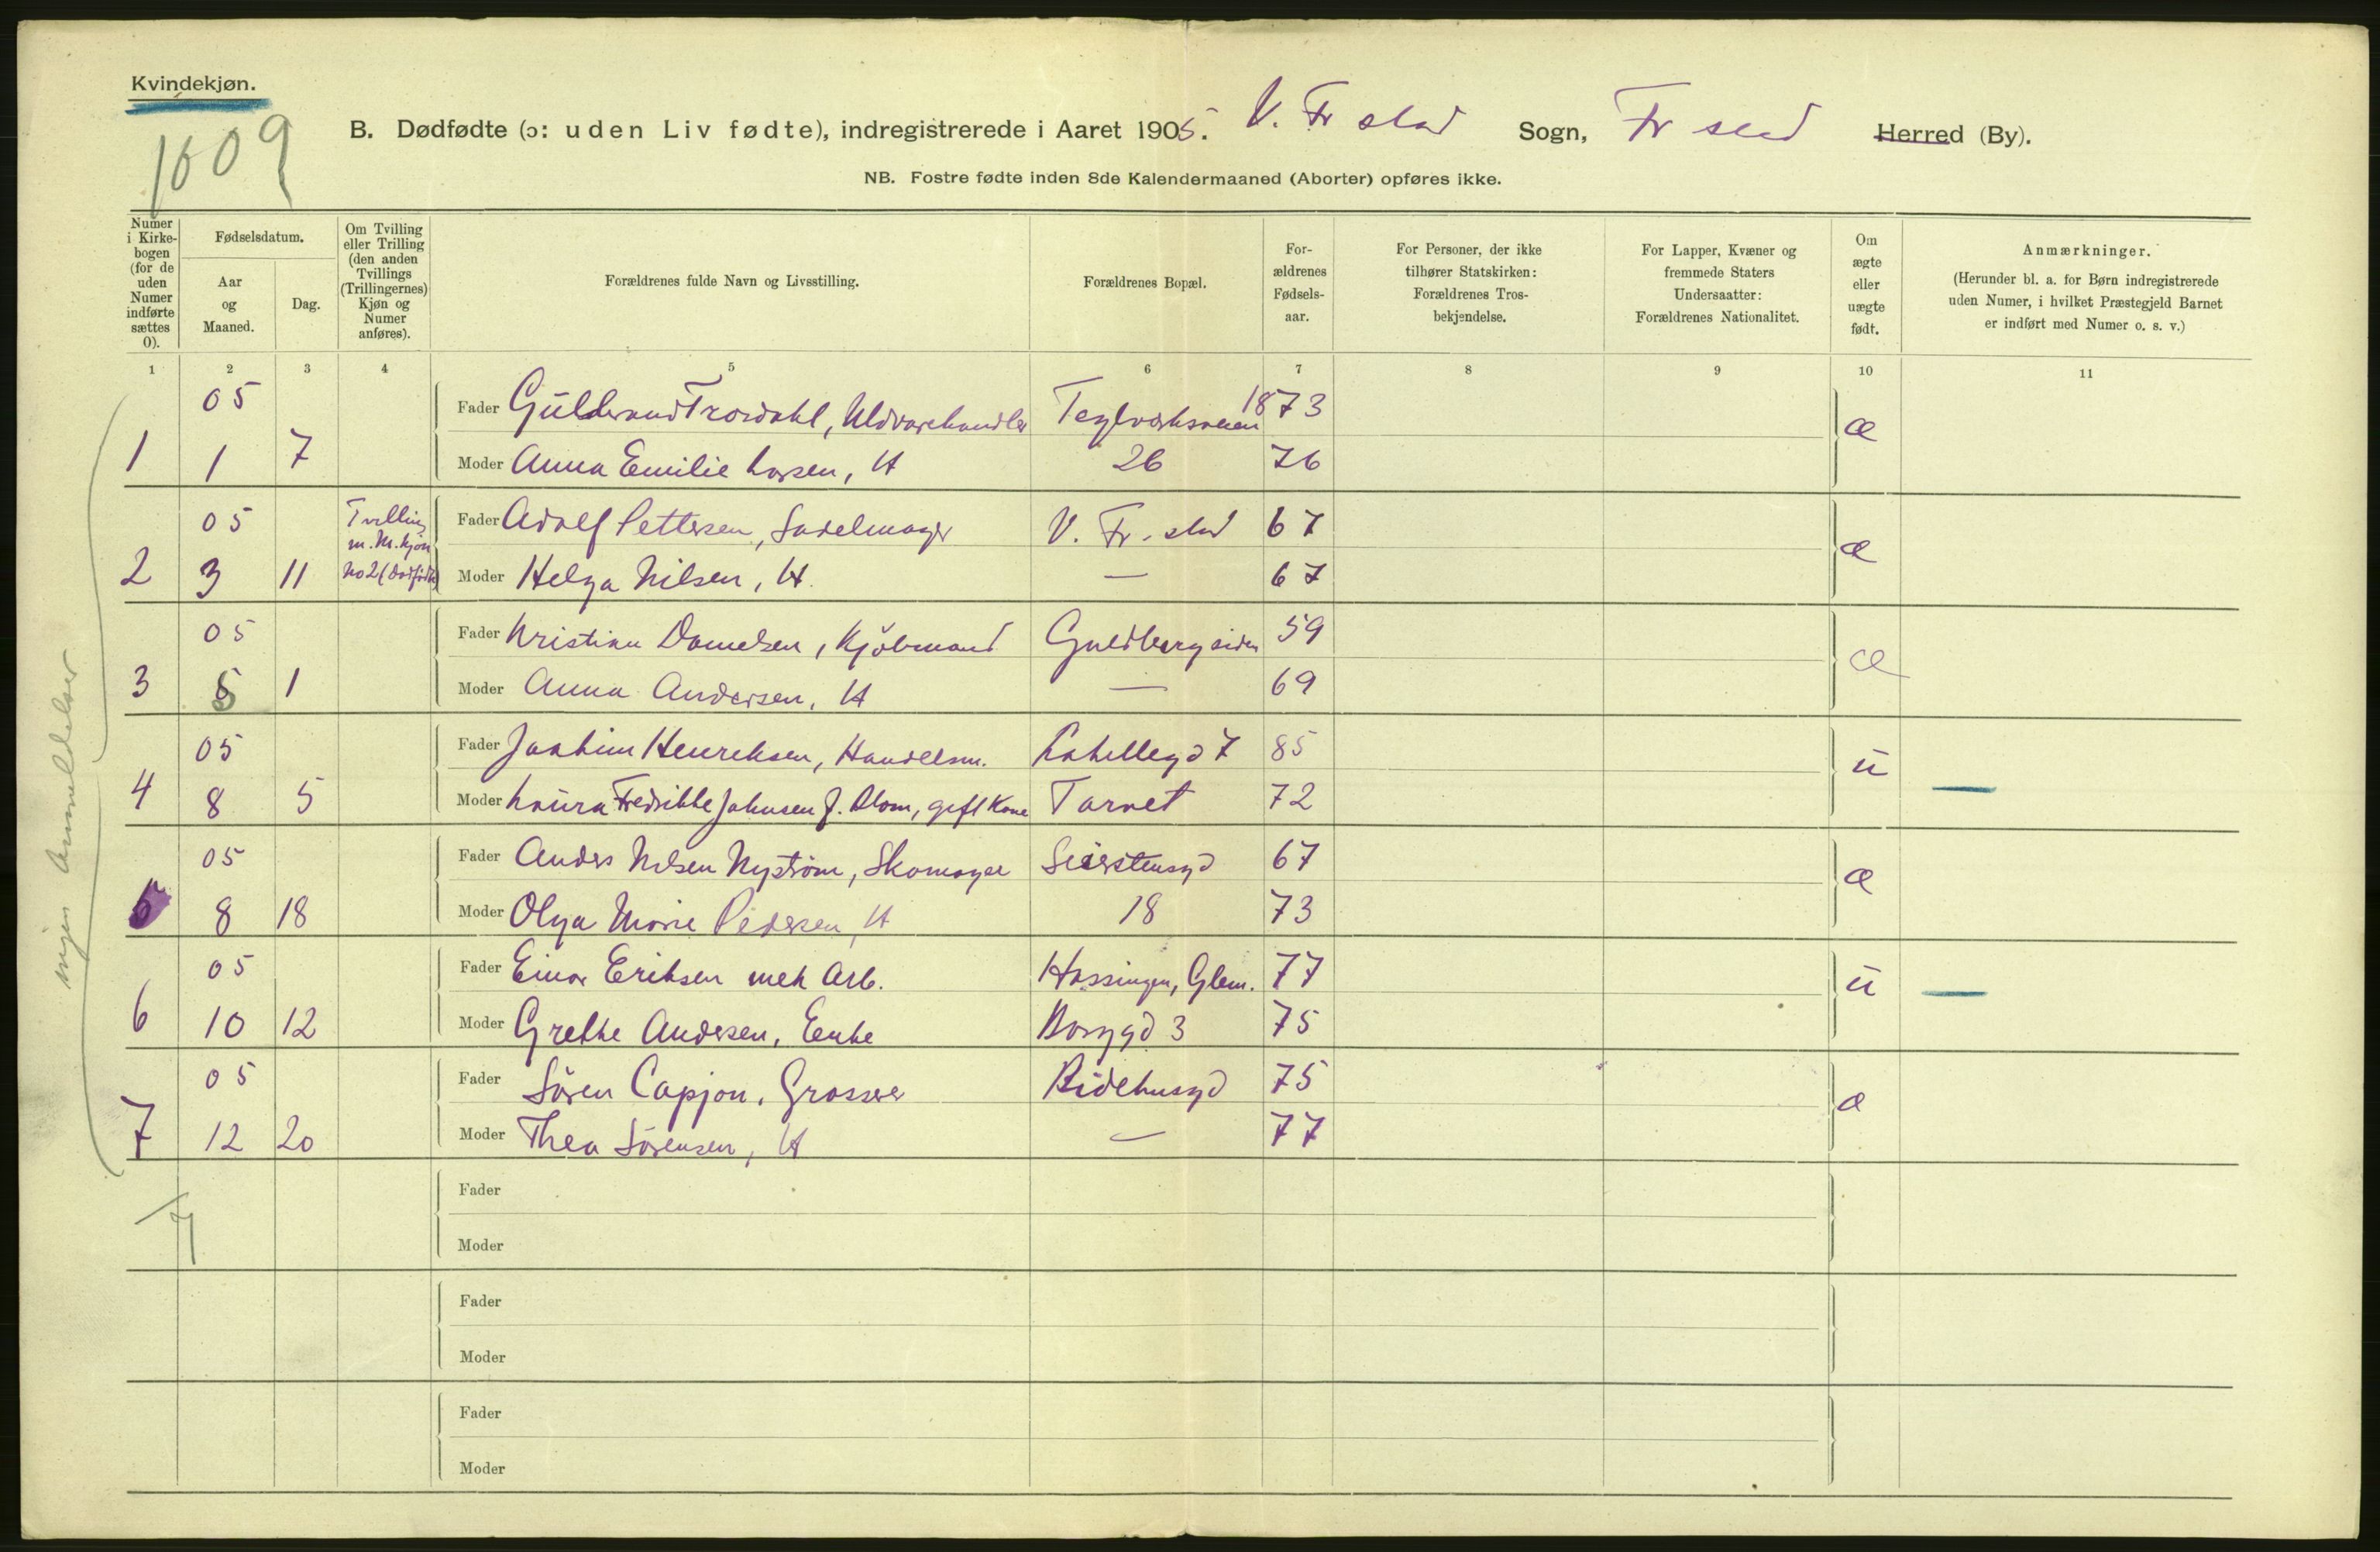 Kvindekjøn.
1609
B. Dødfødte (ɔ: uden Liv fødte), indregistrerede i Aaret 1905. V. Fr stad Sogn, Fr stad Herred (By).
NB. Fostre fødte inden 8de Kalendermaaned (Aborter) opføres ikke.
Numer i Kirkebogen (for de uden Numer indførte sættes 0).
Fødselsdatum.
Aar og Maaned.
Dag.
Om Tvilling eller Trilling (den anden Tvillings (Trillingernes) Kjøn og Numer anføres).
Forældrenes fulde Navn og Livsstilling.
Forældrenes Bopæl.
Forældrenes Fødselsaar.
For Personer, der ikke tilhører Statskirken: Forældrenes Trosbekjendelse.
For Lapper, Kvæner og fremmede Staters Undersaatter: Forældrenes Nationalitet.
Om ægte eller uægte født.
Anmærkninger.
(Herunder bl. a. for Børn indregistrerede uden Numer, i hvilket Præstegjeld Barnet er indført med Numer o. s. v.)
1 2 3 4 5 6 7 8 9 10 11
05 Fader Guldbrand Trosdahl, Uldvarehandler Teglværksveien 1873 æ
1 1 7 Moder Anna Emilie Larsen, H 26 76
05 Tvilling m. M.kjøn No 2 (dødfødt) Fader Adolf Pettersen, Sadelmager V. Fr. stad 67 æ
2 3 11 Moder Helga Nilsen, H. — 67
05 Fader Kristian Danielsen, Kjöbmand Guldbergsiden 59 æ
3 5 1 Moder Anna Andersen, H — 69
05 Fader Joakim Henriksen, Handelsm. Kapellegd 7 85 u
4 8 5 Moder Laura Fredrikke Johnsen f. Blom, gift Kone Torvet 72 —
05 Fader Anders Nilsen Nyström, Skomager Seierstensgd 67 æ
5 8 18 Moder Olga Marie Pedersen, H 18 73
05 Fader Einar Eriksen mek Arb. Hassingen, Glem. 77 u —
6 10 12 Moder Grethe Andersen, Enke Borggd 3 75
05 Fader Sören Capjon, Grosserer Ridehusgd 75 æ
7 12 20 Moder Thea Sörensen, H — 77
Fader
7
Moder
Fader
Moder
Fader
Moder
ingen Anmeldelser